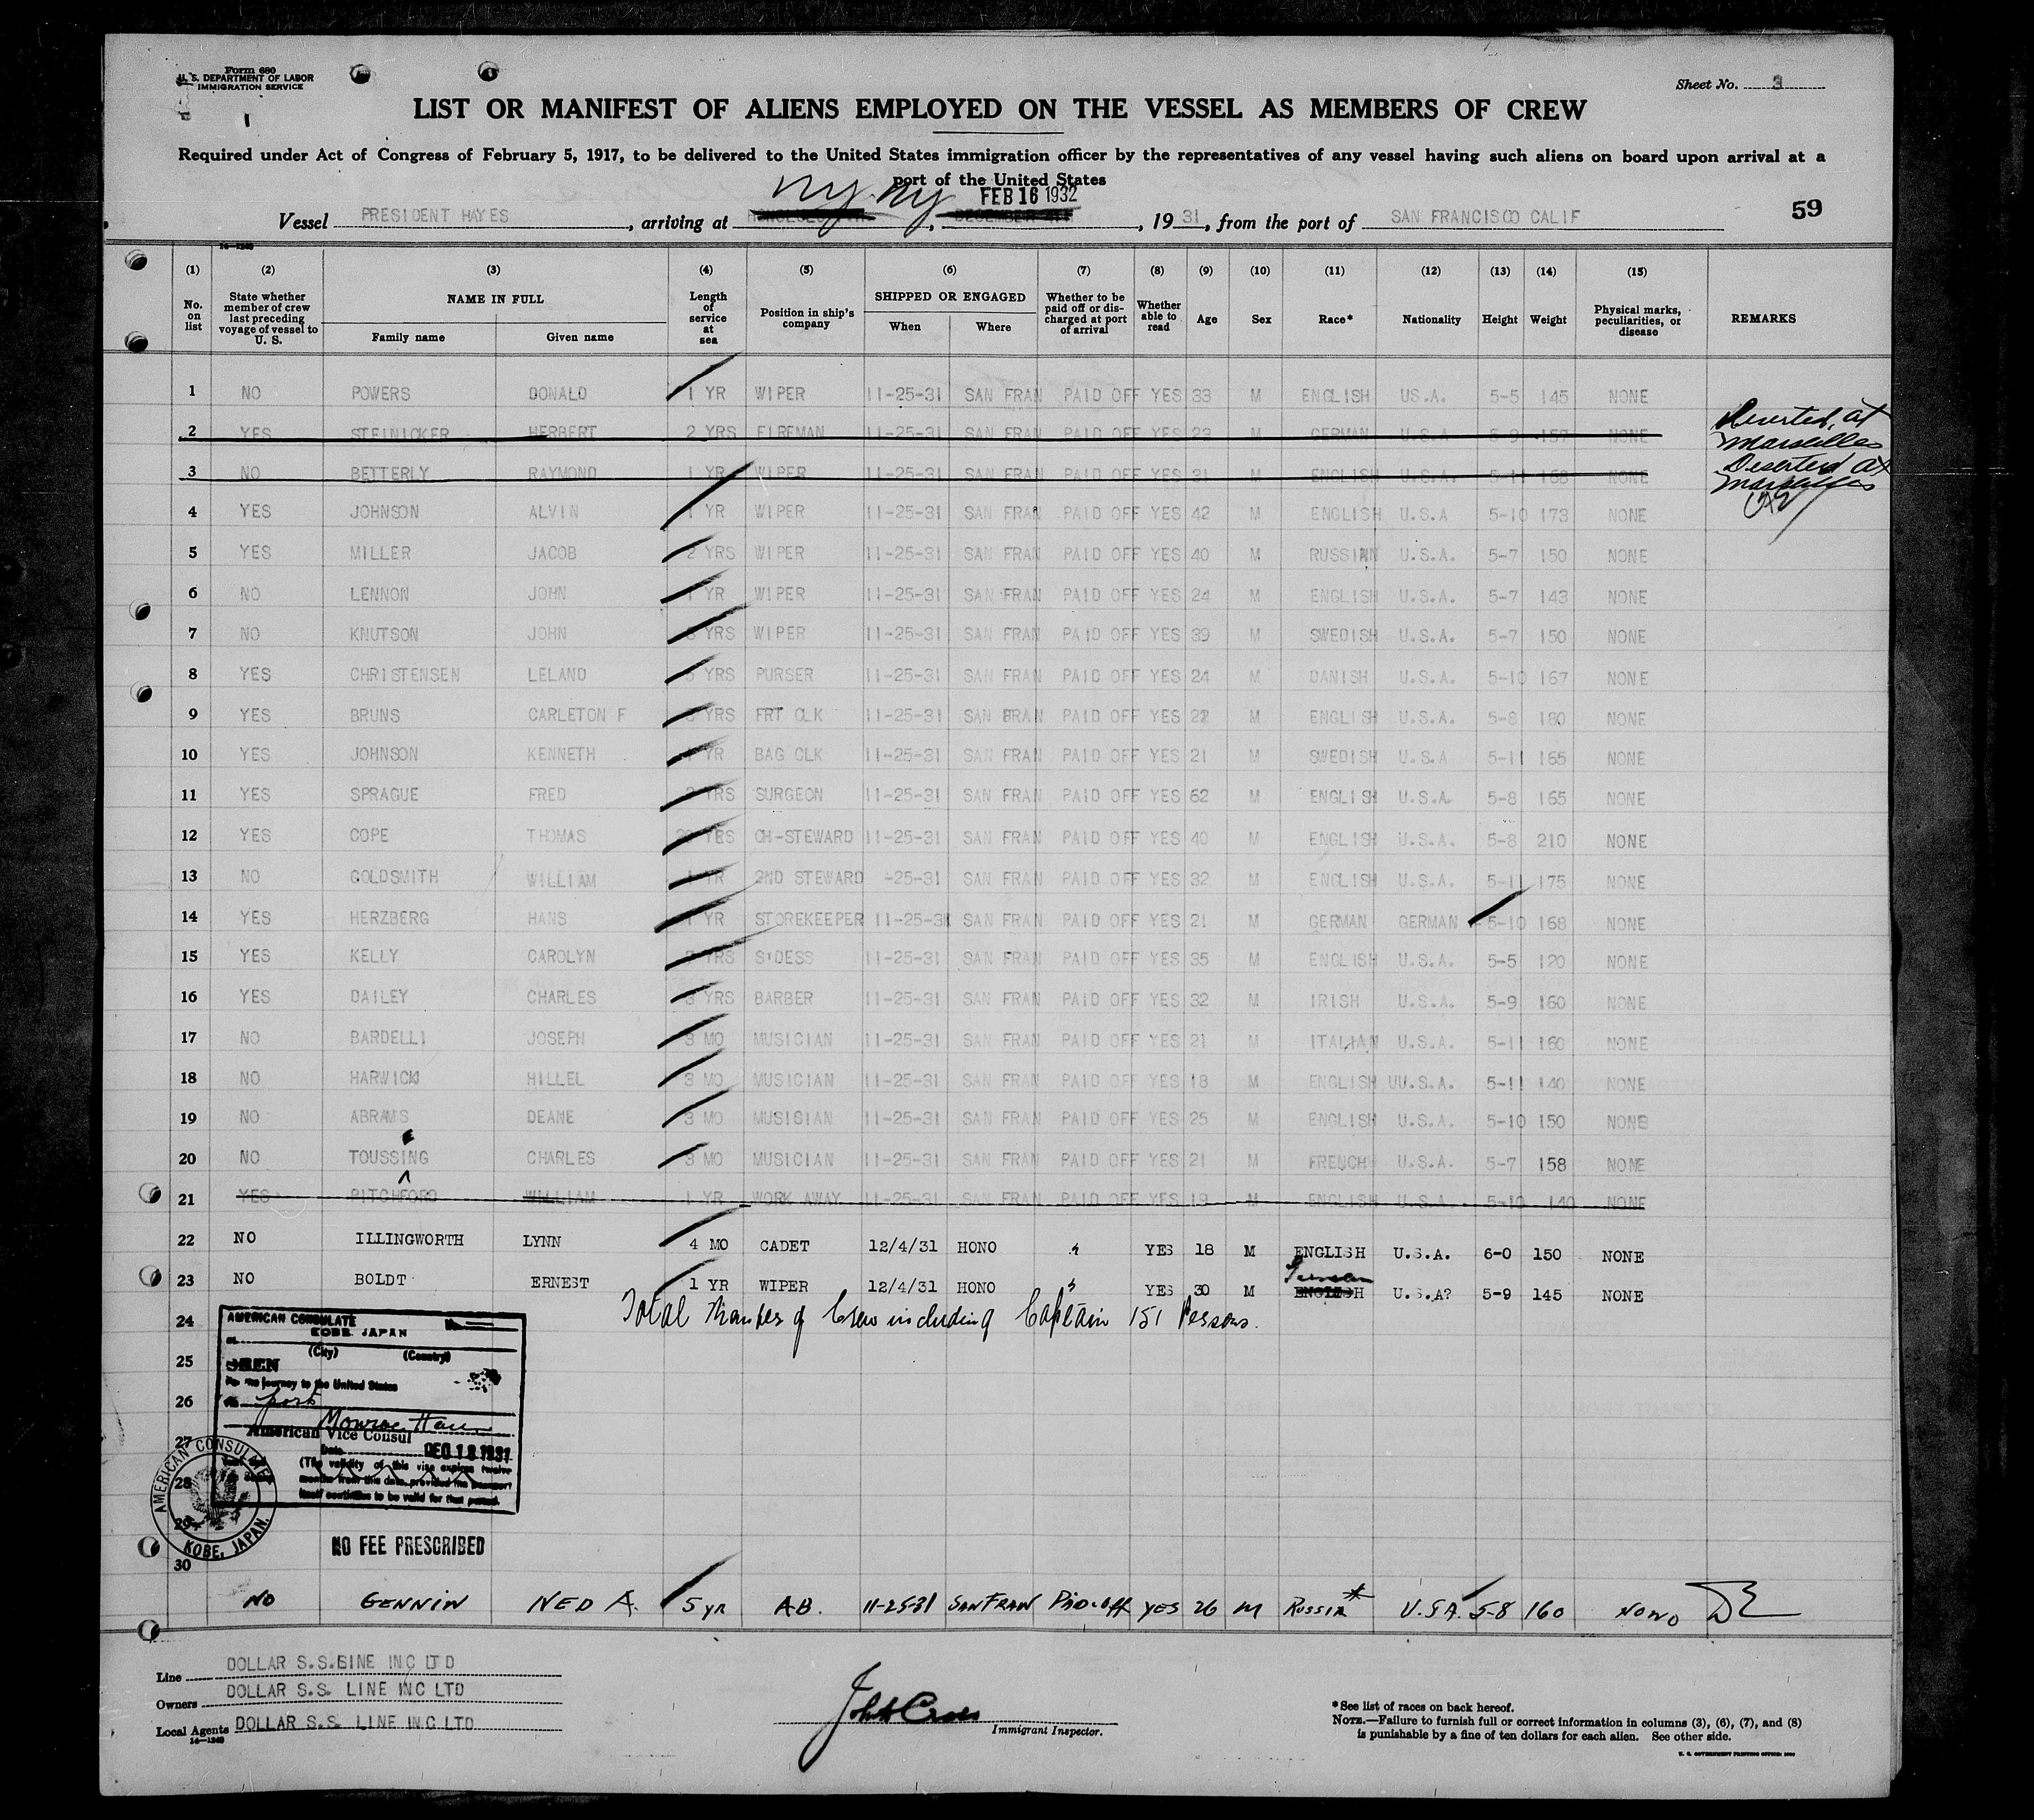 Form 680
U. S. DEPARTMENT OF LABOR
IMMIGRATION SERVICE
Sheet No. 3
LIST OR MANIFEST OF ALIENS EMPLOYED ON THE VESSEL AS MEMBERS OF CREW
Required under Act of Congress of February 5, 1917, to be delivered to the United States immigration officer by the representatives of any vessel having such aliens on board upon arrival at a
port of the United States
NY. NY FEB 16 1932
Vessel PRESIDENT HAYES, arriving at HONOLULU, DECEMBER 4TH, 19 31, from the port of SAN FRANCISCO CALIF
59
(1) (2) (3) (4) (5) (6) (7) (8) (9) (10) (11) (12) (13) (14) (15)
No. on list
State whether member of crew last preceding voyage of vessel to U. S.
NAME IN FULL
Family name Given name
Length of service at sea
Position in ship's company
SHIPPED OR ENGAGED
When Where
Whether to be paid off or discharged at port of arrival
Whether able to read
Age Sex Race* Nationality Height Weight
Physical marks, peculiarities, or disease
REMARKS
1 NO POWERS DONALD 1 YR WIPER 11-25-31 SAN FRAN PAID OFF YES 33 M ENGLISH US.A. 5-5 145 NONE
2 YES STEINICKER HERBERT 2 YRS FIREMAN 11-25-31 SAN FRAN PAID OFF YES 23 M GERMAN U.S.A 5-9 157 NONE Deserted at Marseilles
3 NO BETTERLY RAYMOND 1 YR WIPER 11-25-31 SAN FRAN PAID OFF YES 31 M ENGLISH U.S.A. 5-11 168 NONE Deserted at Marseilles
4 YES JOHNSON ALVIN 1 YR WIPER 11-25-31 SAN FRAN PAID OFF YES 42 M ENGLISH U.S.A 5-10 173 NONE
5 YES MILLER JACOB 2 YRS WIPER 11-25-31 SAN FRAN PAID OFF YES 40 M RUSSIAN U.S.A. 5-7 150 NONE
6 NO LENNON JOHN 1 YR WIPER 11-25-31 SAN FRAN PAID OFF YES 24 M ENGLISH U.S.A. 5-7 143 NONE
7 NO KNUTSON JOHN YRS WIPER 11-25-31 SAN FRAN PAID OFF YES 39 M SWEDISH U.S.A. 5-7 150 NONE
8 YES CHRISTENSEN LELAND YRS PURSER 11-25-31 SAN FRAN PAID OFF YES 24 M DANISH U.S.A. 5-10 167 NONE
9 YES BRUNS CARLETON F YRS FRT CLK 11-25-31 SAN FRAN PAID OFF YES 22 M ENGLISH U.S.A. 5-8 180 NONE
10 YES JOHNSON KENNETH YR BAG CLK 11-25-31 SAN FRAN PAID OFF YES 21 M SWEDISH U.S.A 5-11 165 NONE
11 YES SPRAGUE FRED YRS SURGEON 11-25-31 SAN FRAN PAID OFF YES 62 M ENGLISH U.S.A. 5-8 165 NONE
12 YES COPE THOMAS YRS CH-STEWARD 11-25-31 SAN FRAN PAID OFF YES 40 M ENGLISH U.S.A. 5-8 210 NONE
13 NO GOLDSMITH WILLIAM YR 2ND STEWARD -25-31 SAN FRAN PAID OFF YES 32 M ENGLISH U.S.A. 5-11 175 NONE
14 YES HERZBERG HANS 1 YR STOREKEEPER 11-25-31 SAN FRAN PAID OFF YES 21 M GERMAN GERMAN 5-10 168 NONE
15 YES KELLY CAROLYN YRS S'DESS 11-25-31 SAN FRAN PAID OFF YES 35 M ENGLISH U.S.A. 5-5 120 NONE
16 YES DAILEY CHARLES 3 YRS BARBER 11-25-31 SAN FRAN PAID OFF YES 32 M IRISH U.S.A. 5-9 160 NONE
17 NO BARDELLI JOSEPH 3 MO MUSICIAN 11-25-31 SAN FRAN PAID OFF YES 21 M ITALIAN U.S.A. 5-11 160 NONE
18 NO HARWICK HILLEL 3 MO MUSICIAN 11-25-31 SAN FRAN PAID OFF YES 18 M ENGLISH UU.S.A. 5-11 140 NONE
19 NO ABRAMS DEANE 3 MO MUSICIAN 11-25-31 SAN FRAN PAID OFF YES 25 M ENGLISH U.S.A. 5-10 150 NONE
20 NO TOUSSING CHARLES 3 MO MUSICIAN 11-25-31 SAN FRAN PAID OFF YES 21 M FRENCH U.S.A. 5-7 158 NONE
21 YES PITCHFORD WILLIAM 1 YR WORK AWAY 11-25-31 SAN FRAN PAID OFF YES 19 M ENGLISH U.S.A 5-10 140 NONE
22 NO ILLINGWORTH LYNN 4 MO CADET 12/4/31 HONO " YES 18 M ENGLISH U.S.A. 6-0 150 NONE
23 NO BOLDT ERNEST 1 YR WIPER 12/4/31 HONO " YES 30 M ENGLISH German U.S.A? 5-9 145 NONE
24 Total Number of Crew including Captain 151 Persons.
25
26
27
28
29
30
AMERICAN CONSULATE
KOBE, JAPAN
(City) (Country)
SEEN
For the journey to the United States
port
Monroe Hall
American Vice Consul
Date DEC 18 1931
(The validity of this visa expires twelve
months from this date, provided the passport
itself continues to be valid for that period.
AMERICAN CONSULATE
KOBE, JAPAN.
NO FEE PRESCRIBED
NO GENNIN NED A. 5 YR A.B. 11-25-31 SAN FRAN PAID-OFF YES 26 M RUSSIA* U.S.A. 5-8 160 NONO
Line DOLLAR S.S.LINE INC LTD
Owners DOLLAR S.S. LINE INC LTD
Local Agents DOLLAR S.S. LINE INC LTD
14—1249
Immigrant Inspector.
*See list of races on back hereof.
NOTE.—Failure to furnish full or correct information in columns (3), (6), (7), and (8)
is punishable by a fine of ten dollars for each alien. See other side.